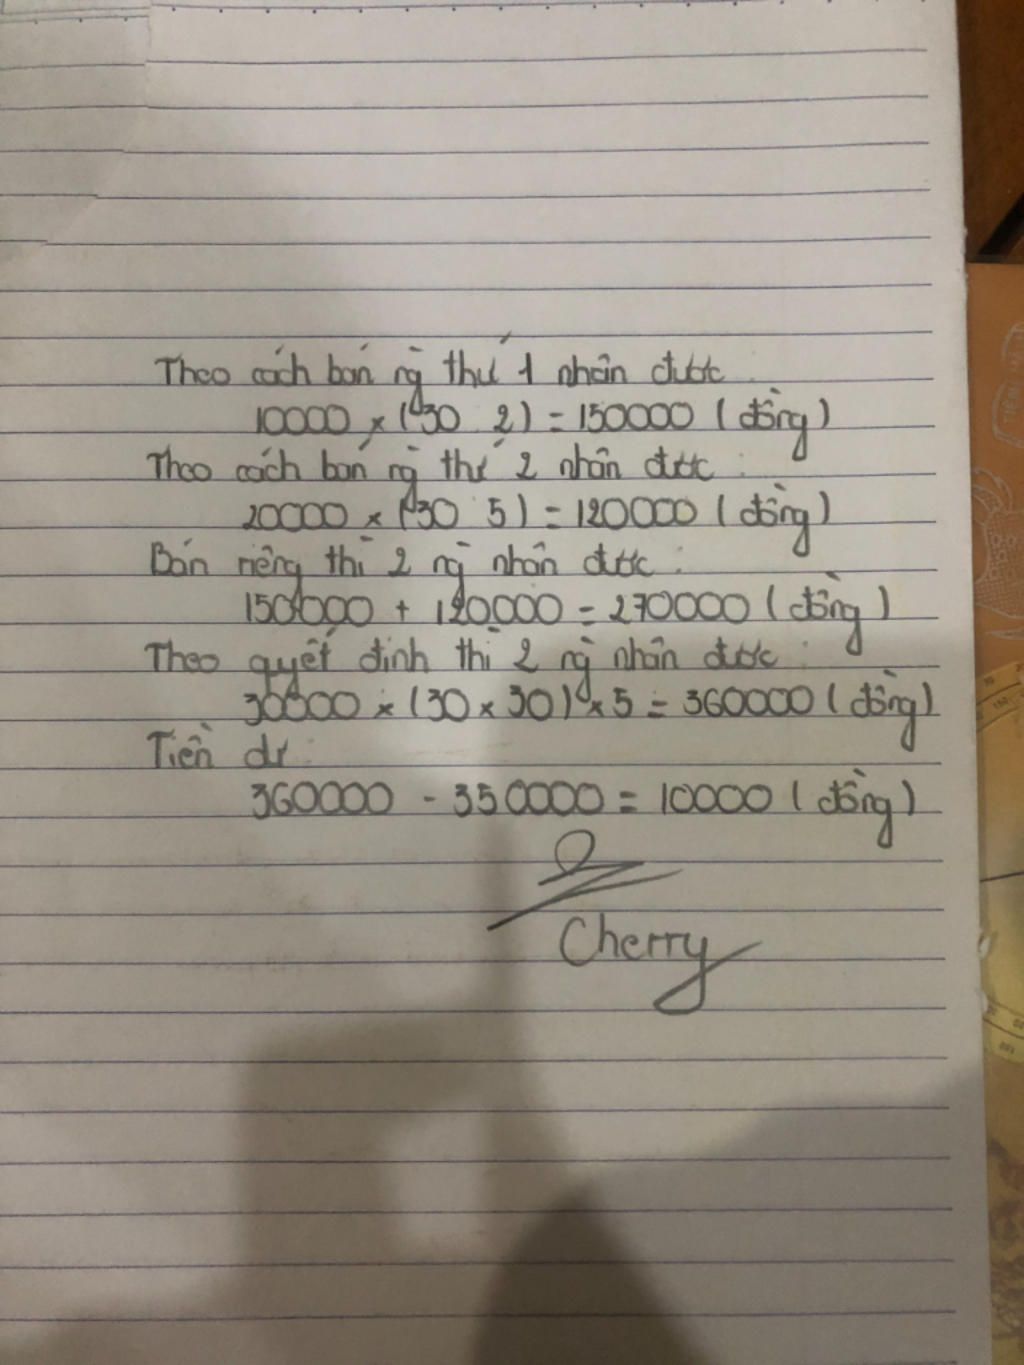 Theo cách bán ng̀ thứ 1 nhân được
10000 x (30 2) = 150000 (đồng)
Theo cách bán ng̀ thứ 2 nhân được :
20000 x (30 5) = 120000 (đồng)
Bán riêng thì 2 ng̀ nhân được :
150000 + 120000 = 270000 (đồng)
Theo quyết định thì 2 ng̀ nhân được :
30000 x (30 x 30) x 5 = 360000 (đồng)
Tiền dư :
360000 - 350000 = 10000 (đồng)
Cherry